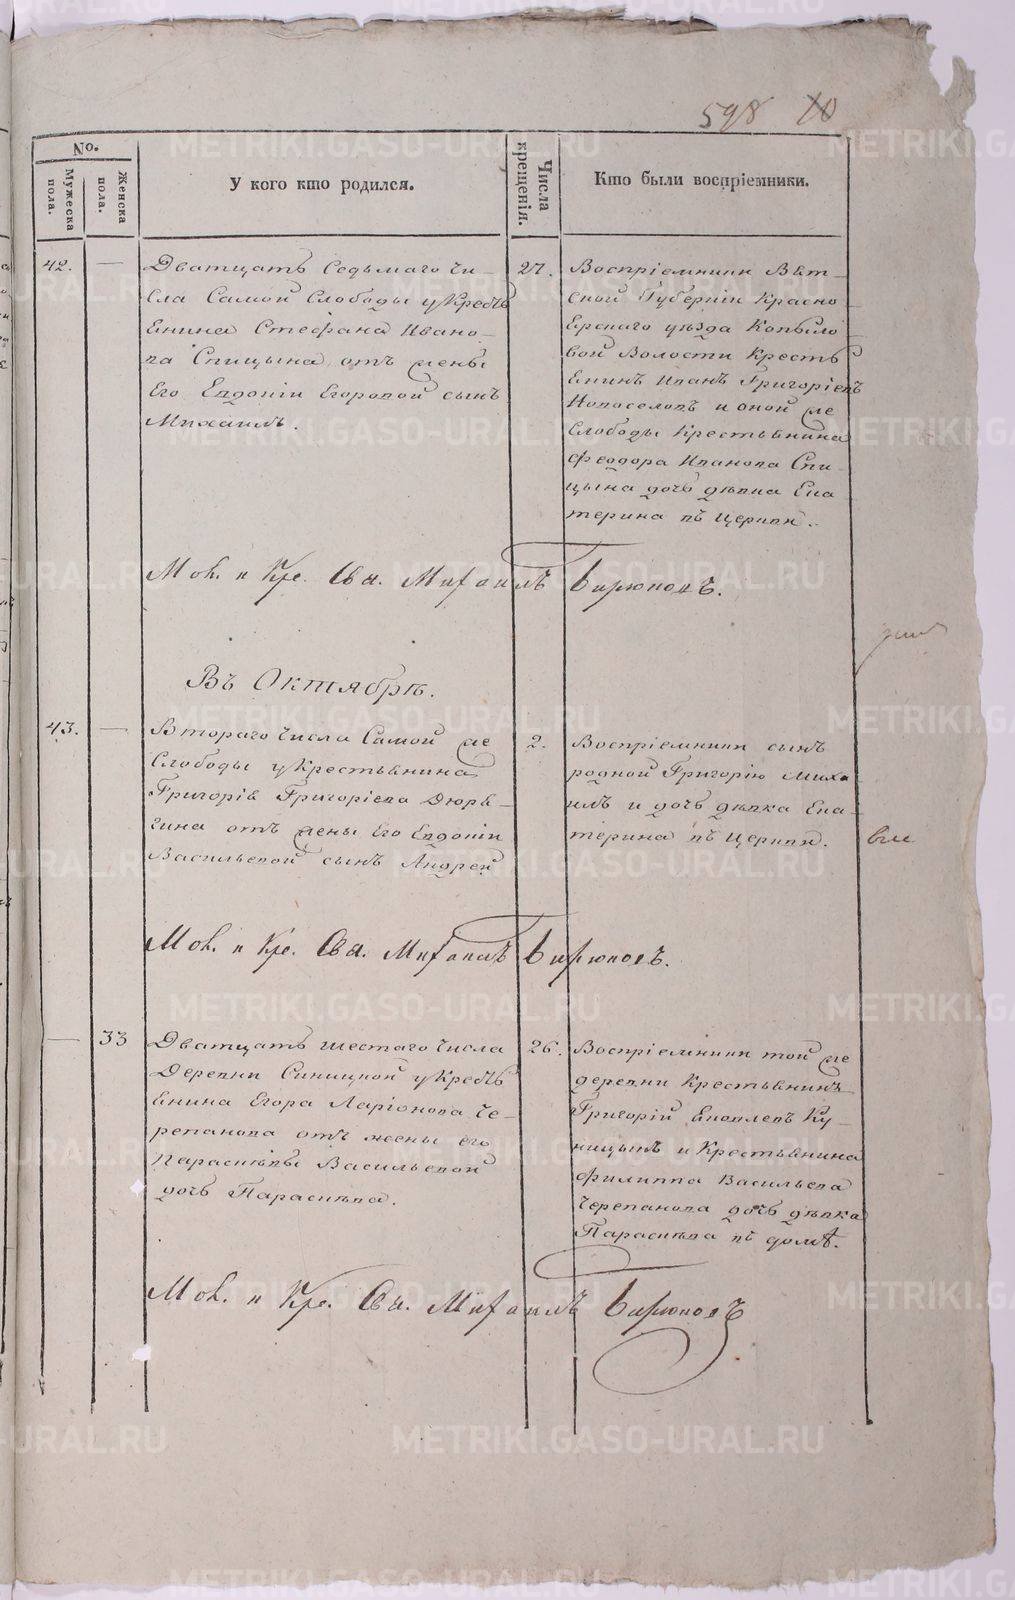 598 10
No.
Мужеска пола.
Женска пола.
У кого кто родился.
Числа крещенія.
Кто были воспріемники.
42. —
Дватцать Седьмаго чи-
сла Самой Слободы у Кресть
янина Стефана Ивано-
ва Спицына отъ жены
Его Евдокіи Егоровой сынъ
Михаилъ.
27.
Воспріемники Вят-
ской Губерніи Красно
Ерскаго уѣзда Копыло
вой Волости Кресть
янинъ Иванъ Григоріевъ
Новоселовъ и оной же
Слободы Крестьянина
Феодора Иванова Спи-
цына дочь дѣвка Ека
терина въ церкви.
Мол. и Кре. Свя. Михаилъ Бирюковъ.
Въ Октябрѣ.
43. —
Втораго числа Самой же
Слободы у Крестьянина
Григорія Григоріева Дюрь-
гина отъ жены Его Евдокіи
Васильевой сынъ Андрей
2.
Воспріемники сынъ
родной Григорію Миха
илъ и дочь дѣвка Ека-
терина въ церкви.
Мол. и Кре. Свя. Михаилъ Бирюковъ.
— 33
Дватцать шестаго числа
Деревни Синицкой у Кресть
янина Егора Ларіонова Че-
репанова отъ жены его
Параскѣвы Васильевой
дочь Параскѣва.
26.
Воспріемники той же
деревни Крестьянинъ
Григорій Яковлевъ Ку-
ницынъ и Крестьянина
Филиппа Васильева
Черепанова дочь дѣвка
Параскѣва въ домѣ.
Мол. и Кре. Свя. Михаилъ Бирюковъ
METRIKI.GASO-URAL.RU